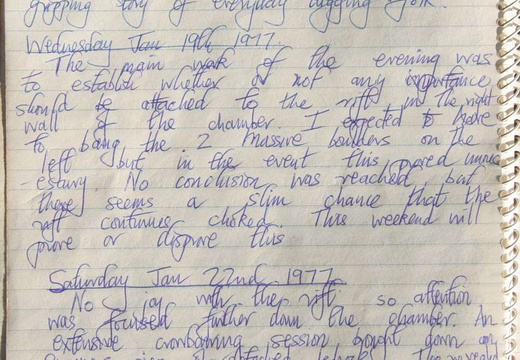 gripping story of everyday digging folk.
Wednesday Jan 19th 1977.
The main work of the evening was
to establish whether or not any importance
should be attached to the rift in the right
wall of the chamber. I expected to have
to bang the 2 massive boulders on the
left but in the event this proved unnec
-essary. No conclusion was reached, but
there seems a slim chance that the
rift continues choked. This weekend will
prove or disprove this
Saturday Jan 22nd 1977
No joy with the rift, so attention
was focused further down the chamber. An
extensive crowbarring session bought down any